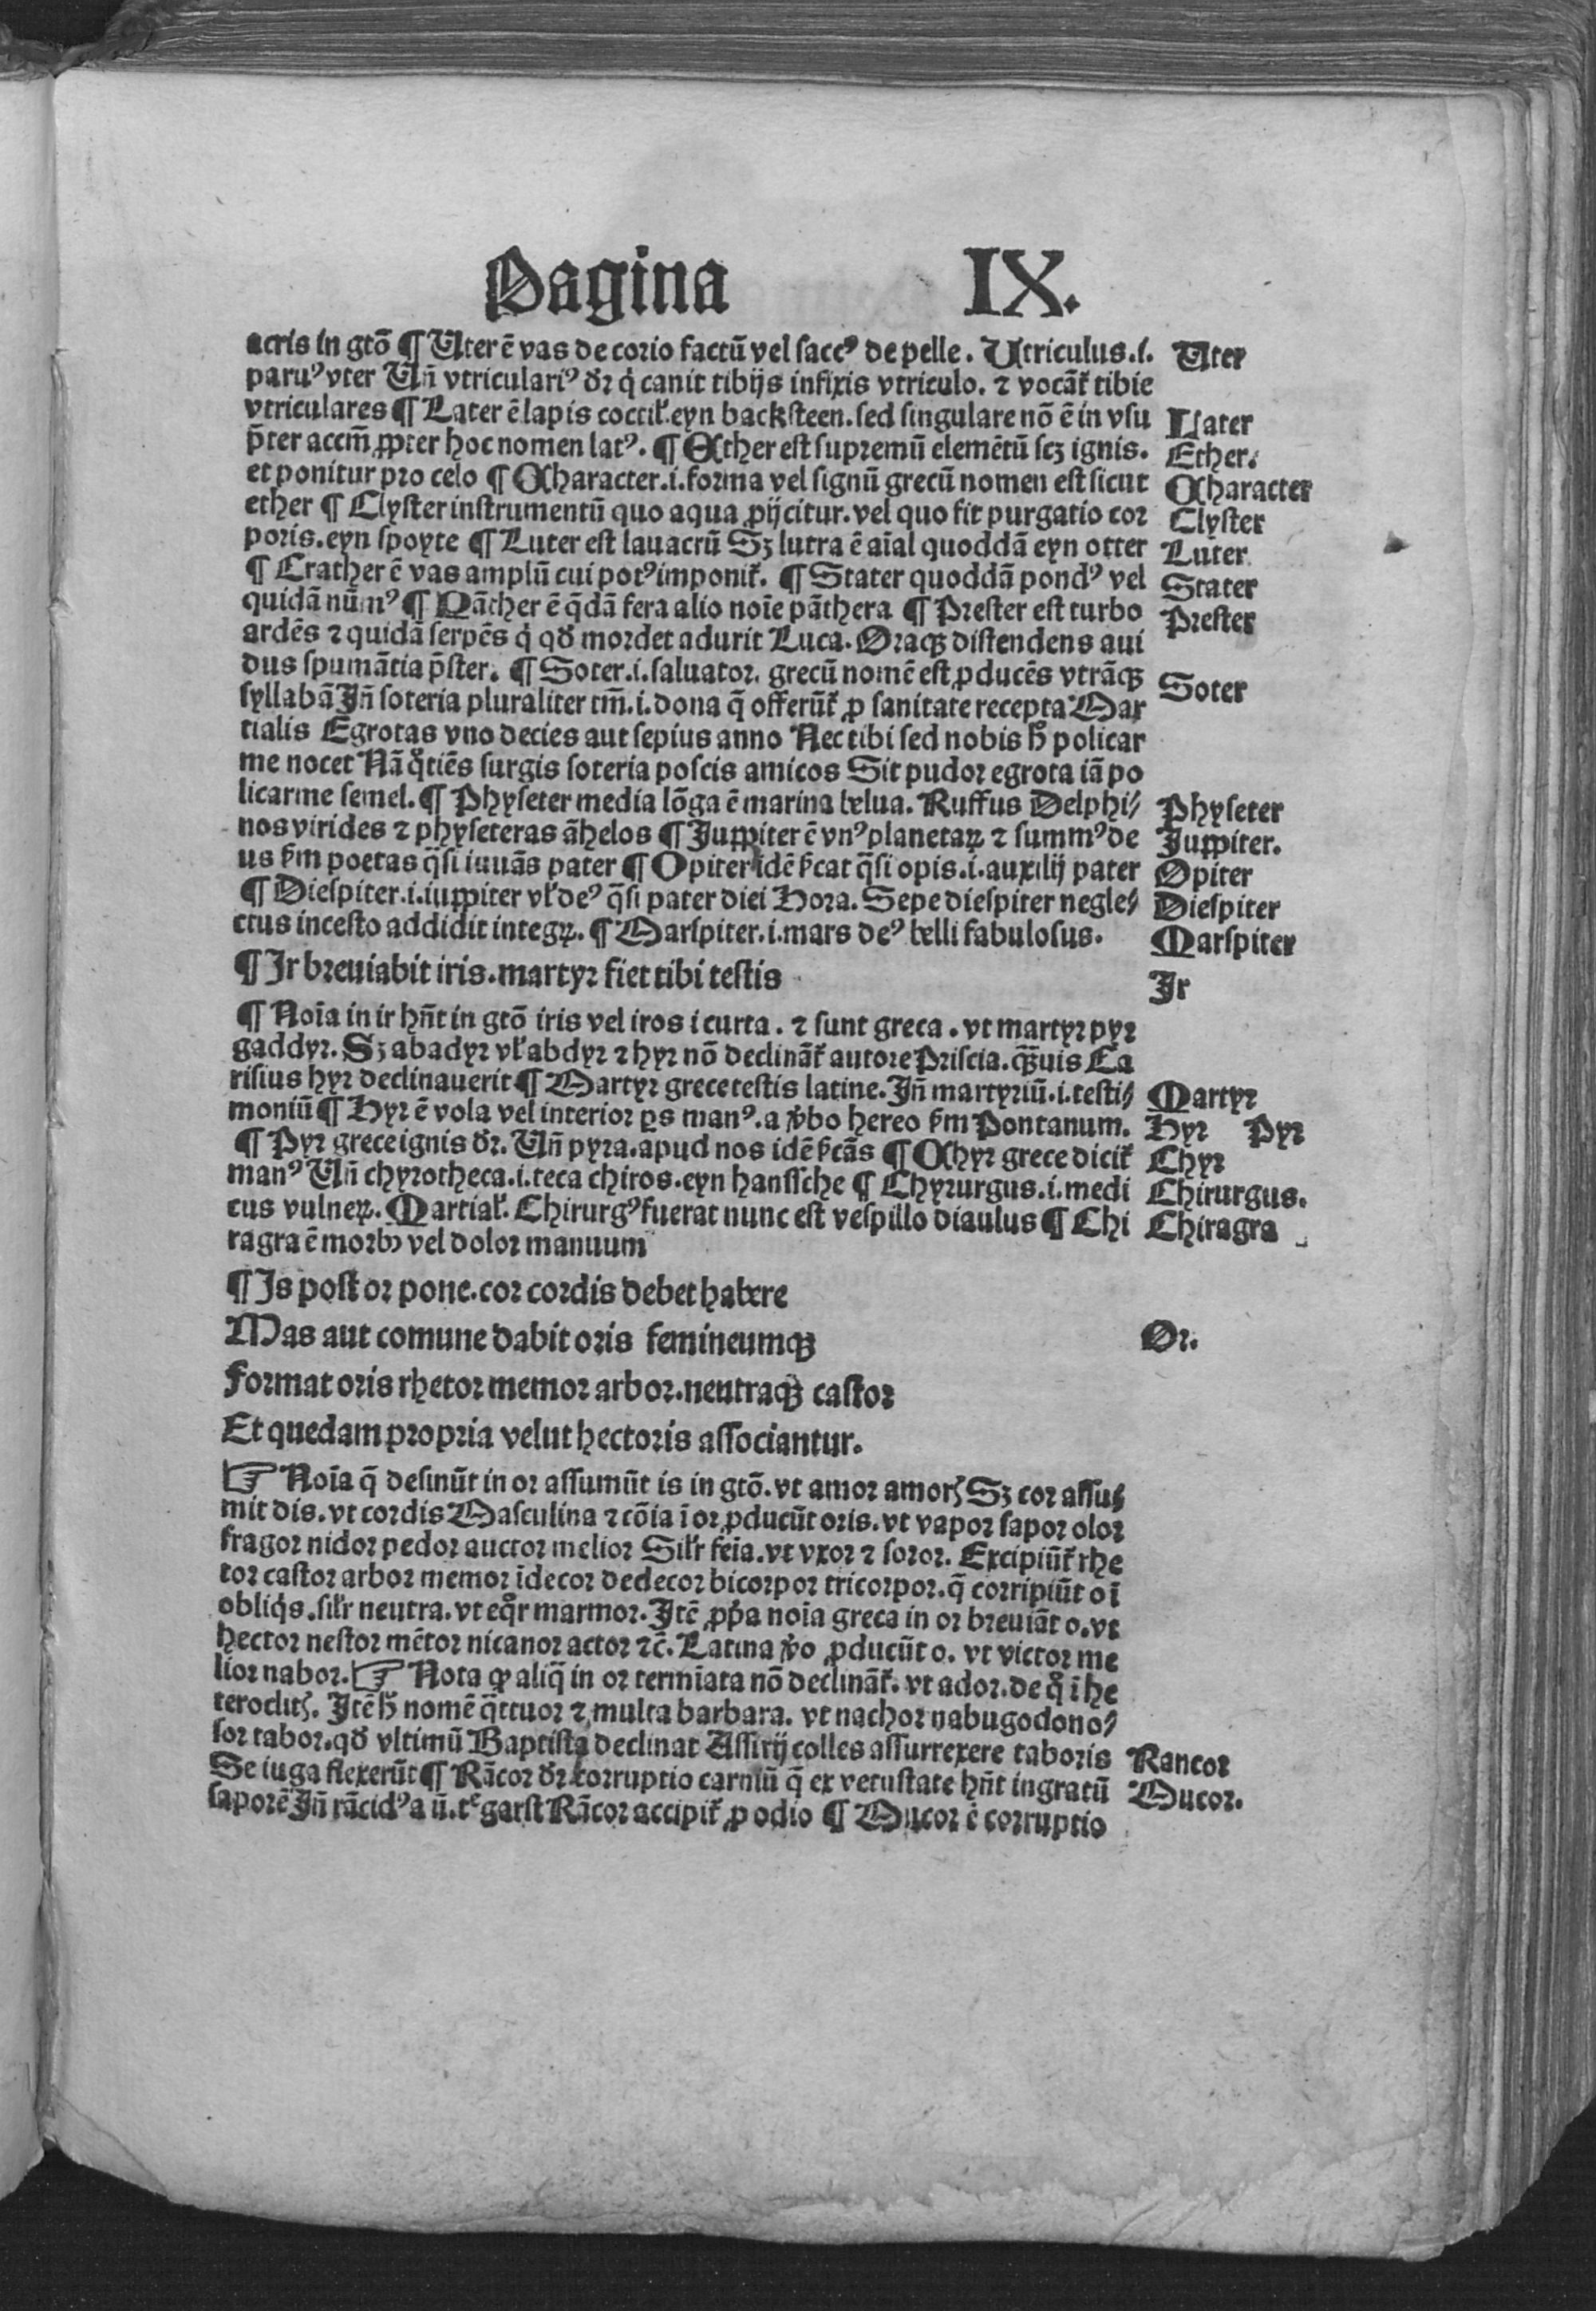 Pagina IX.
acris in gtō ¶ Uter ē vas de corio factū vel saccꝰ de pelle. Utriculus.i. Uter
paruꝰ vter Uñ vtriculariꝰ dr̄ q̇ canit tibijs infixis vtriculo. ⁊ vocāt᷑ tibie
vtriculares ¶ Later ē lapis coctil᷑.eyn backsteen.sed singulare nō ē in vsu Later
p̄ter accm̄ ꝓpter hoc nomen latꝰ. ¶ Ether est supremū elemētū scꝫ ignis. Ether.
et ponitur pro celo ¶ Character.i.forma vel signū grecū nomen est sicut Character
ether ¶ Clyster instrumentū quo aqua ꝓijcitur.vel quo fit purgatio cor Clyster
poris.eyn spoyte ¶ Luter est lauacrū Sꝫ lutra ē aīal quoddā eyn otter Luter
¶ Crather ē vas amplū cui potꝰ imponit᷑. ¶ Stater quoddā pondꝰ vel Stater
quidā nūmꝰ ¶ Pāther ē q̄dā fera alio noīe pāthera ¶ Prester est turbo Prester
ardēs ⁊ quidā serpēs q̇ qd̄ mordet adurit Luca. Oraqꝫ distendens aui
dus spumātia p̄ster. ¶ Soter.i.saluator. grecū nomē est ꝓducēs vtrāqꝫ Soter
syllabā Iñ soteria pluraliter tm̄.i.dona q̄ offerūt᷑ ꝓ sanitate recepta Mar
tialis Egrotas vno decies aut sepius anno Nec tibi sed nobis h̄ policar
me nocet Nā q̊tiēs surgis soteria poscis amicos Sit pudor egrota iā po
licarme semel. ¶ Physeter media lōga ē marina belua. Ruffus Delphi⸗ Physeter
nos virides ⁊ physeteras āhelos ¶ Iuppiter ē vnꝰ planetaꝝ ⁊ summꝰ de Iuppiter.
us ẜm poetas q̄si iuuās pater ¶ Opiter idē ẜcat q̄si opis.i.auxilij pater Opiter
¶ Diespiter.i.iuppiter vl᷑ deꝰ q̄si pater diei Hora. Sepe diespiter negle⸗ Diespiter
ctus incesto addidit integꝝ. ¶ Marspiter.i.mars deꝰ belli fabulosus. Marspiter
¶ Ir breuiabit iris.martyr fiet tibi testis Ir
¶ Noīa in ir hn̄t in gtō iris vel iros i curta. ⁊ sunt greca. vt martyr pyr
gaddyr. Sꝫ abadyr vl᷑ abdyr ⁊ hyr nō declināt᷑ autore Priscia. qꝫuis Ea
risius hyr declinauerit ¶ Martyr grece testis latine. Iñ martyriū.i.testi⸗ Martyr
moniū ¶ Hyr ē vola vel interior ꝑs manꝰ.a v̄bo hereo ẜm Pontanum. Hyr Pyr
¶ Pyr grece ignis dr̄. Uñ pyra.apud nos idē ẜcās ¶ Chyr grece dicit᷑ Chyr
manꝰ Uñ chyrotheca.i.teca chiros.eyn hanssche ¶ Chyrurgus.i.medi Chirurgus.
cus vulneꝝ. Martial᷑. Chirurgꝰ fuerat nunc est vespillo diaulus ¶ Chi Chiragra
ragra ē morbꝰ vel dolor manuum
¶ Is post or pone.cor cordis debet habere
Mas aut comune dabit oris femineumqꝫ Or.
Format oris rhetor memor arbor.neutraqꝫ castor
Et quedam propria velut hectoris associantur.
☞ Noīa q̄ desinūt in or assumūt is in gtō.vt amor amorꝭ Sꝫ cor assu⸗
mit dis.vt cordis Masculina ⁊ cōia ī or ꝓducūt oris.vt vapor sapor olor
fragor nidor pedor auctor melior Sil᷑r feīa.vt vxor ⁊ soror. Excipiūt᷑ rhe
tor castor arbor memor īdecor dedecor bicorpor tricorpor.q̄ corripiūt o ī
obliq̇s.sil᷑r neutra.vt eq̊r marmor. Itē ꝓp̄a noīa greca in or breuiāt o.vt
hector nestor mētor nicanor actor ⁊c̄. Latina v̄o ꝓducūt o. vt victor me
lior nabor. ☞ Nota ꝙ aliq̄ in or termīata nō declināt᷑. vt ador.de q̊ ī he
teroclitꝭ. Itē h̄ nomē q̄ttuor ⁊ multa barbara. vt nachor nabugodono⸗
sor tabor.qd̄ vltimū Baptista declinat Assirij colles assurrexere taboris Rancor
Se iuga flexerūt ¶ Rācor dr̄ corruptio carniū q̄ ex vetustate hn̄t ingratū Mucor.
saporē Iñ rācidꝰ a ū. garst Rācor accipit᷑ ꝓ odio ¶ Mucor ē corruptio